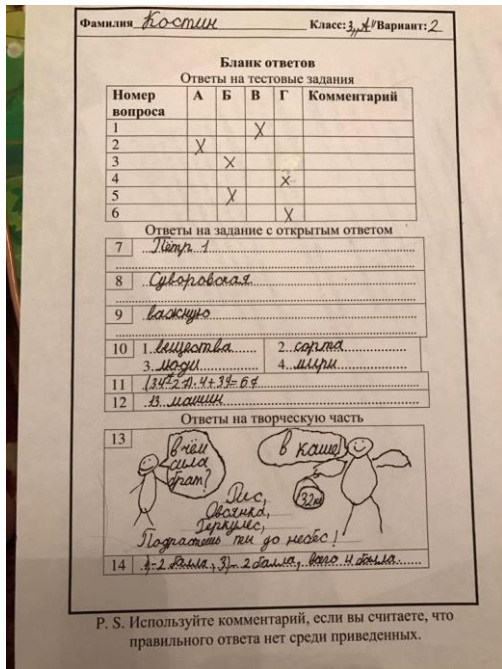 Фамилия Костин Класс: 3 „А" Вариант: 2
Бланк ответов
Ответы на тестовые задания
Номер вопроса А Б В Г Комментарий
1 X
2 X
3 X
4 X
5 X
6 X
Ответы на задание с открытым ответом
7 Пётр 1
8 Суворовская
9 важную
10 1. вещества 2. сорта
3. люди 4.
11
12 13 машин
Ответы на творческую часть
13
в чём
сила
брат?
в каше!
32кг
Рис,
Овсянка,
Геркулес,
Подрастешь ты до небес!
14 1)-2 балла, 3)- 2 балла, всего 4 балла.
P. S. Используйте комментарий, если вы считаете, что
правильного ответа нет среди приведенных.